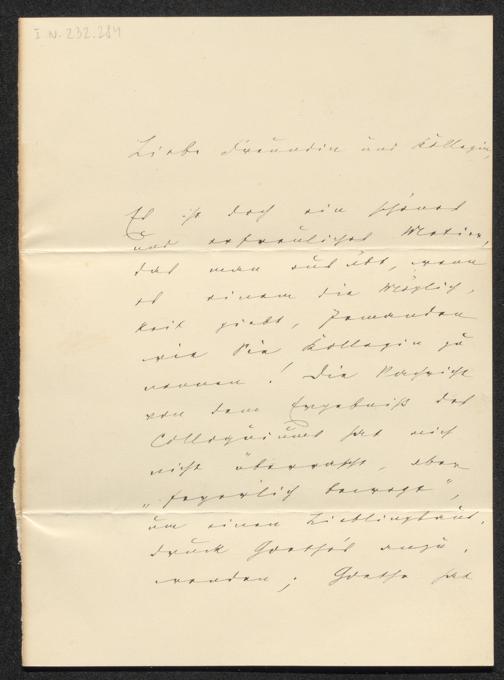 I. N. 232.284
Liebe Freundin und Kollegin,
Es ist doch ein schönes
und erfreuliches Metier,
das man ausübt, wenn
es einem die Möglich-
keit giebt, Jemanden
wie Sie Kollegin zu
nennen! Die Nachricht
von dem Ergebniß des
Colloquiums hat mich
nicht überrascht, aber
„feyerlich bewegt“,
um einen Lieblingsaus-
druck Goethe's anzu-
wenden; Goethe hat